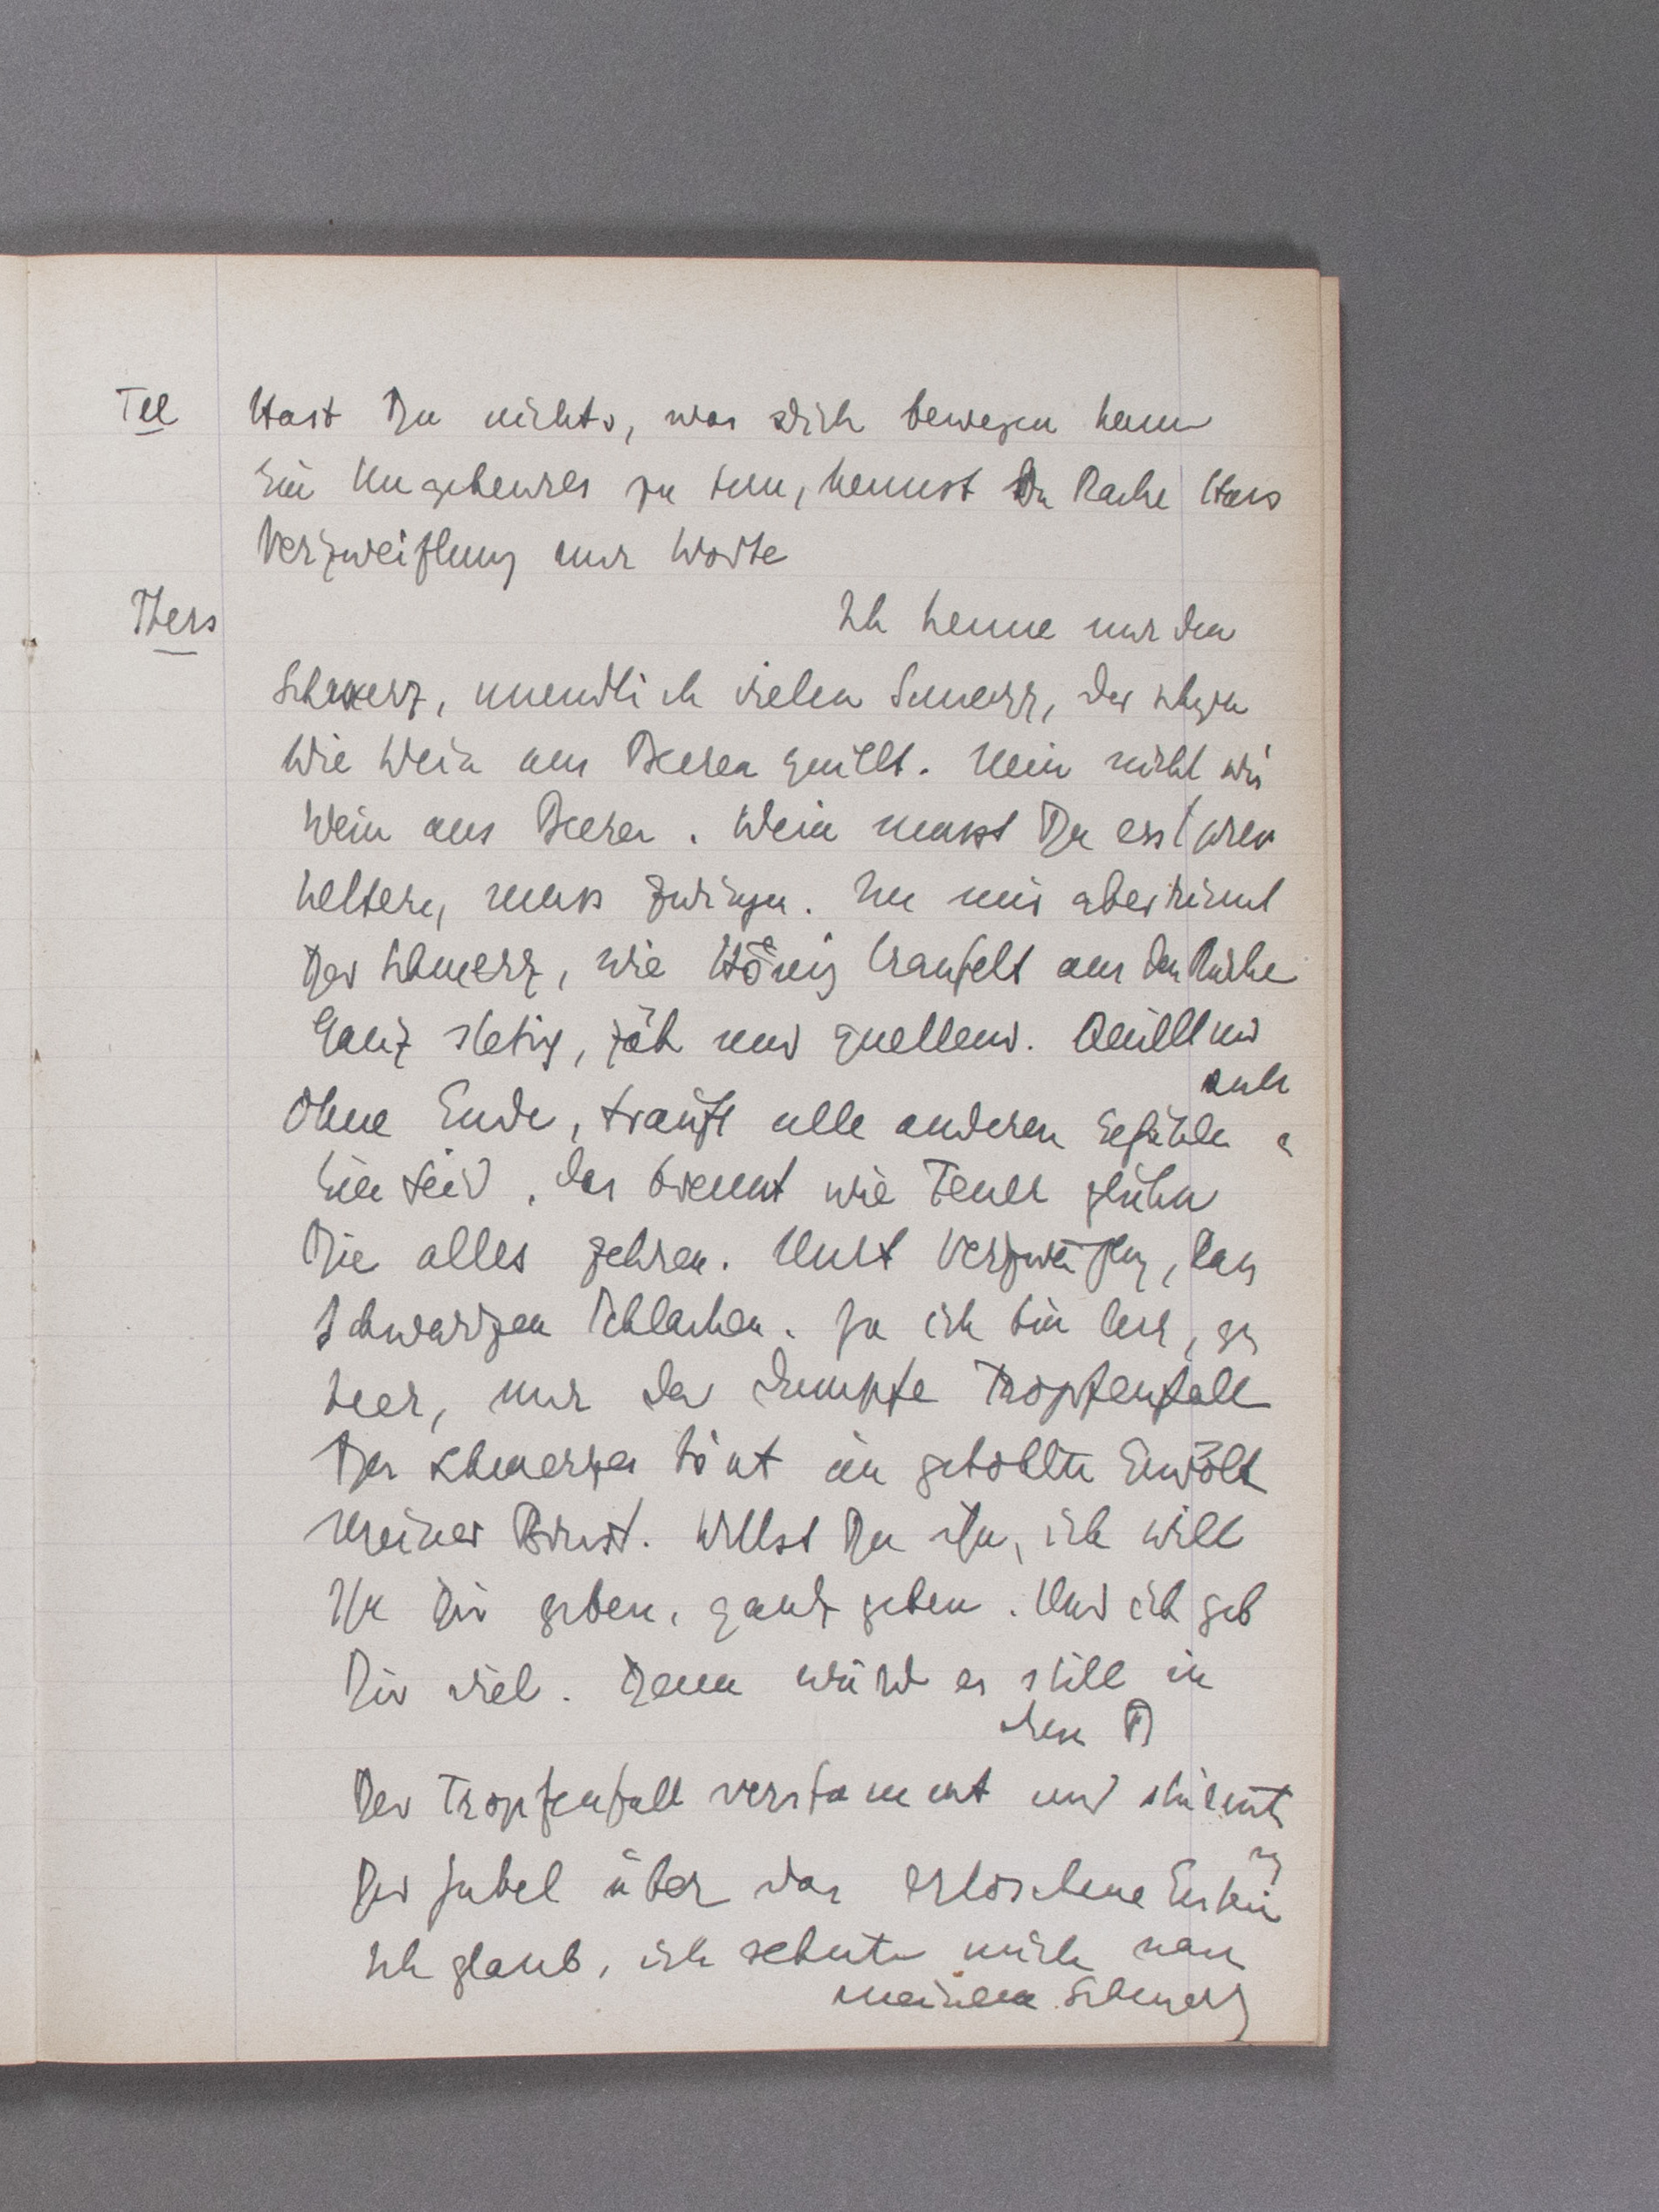 Tel Hast Du nichts, was dich bewegen kann
Ein Ungeheures zu tun, kennst Du Rache Hass
Verzweiflung nur Worte
Thers Ich kenne nur den
Schmerz, unendlich vielen Schmerz, der
Wie Wein aus Beeren quillt. Nein nicht wie
Wein aus Beeren. Wein musst Du erst
keltern, muss zwingen. In mir aber rinnt
Der Schmerz, wie Hönig träufelt aus der
Ganz stetig, zäh und quellend. Quillt und
Ohne Ende, träuft alle anderen Gefühle
Ein Leid, das brennt wie Feuer glühn
Die alles zehren. Und Verzweiflung,
Schwarzen Schlacken. Ja ich bin leer,
leer, nur der dumpfe Tropfenfall
Des Schmerzes tönt im gehöhlten Gewölb
Meiner Brust. Willst Du ihn, ich will
Ihn Dir geben, ganz geben. Und ich geb
Dir viel. Denn würd es still in
der B
Der Tropfenfall verstummt und stürmt
Der Jubel über das erloschene
Ich glaub, ich sehnte mich nach
meinem Schmerz